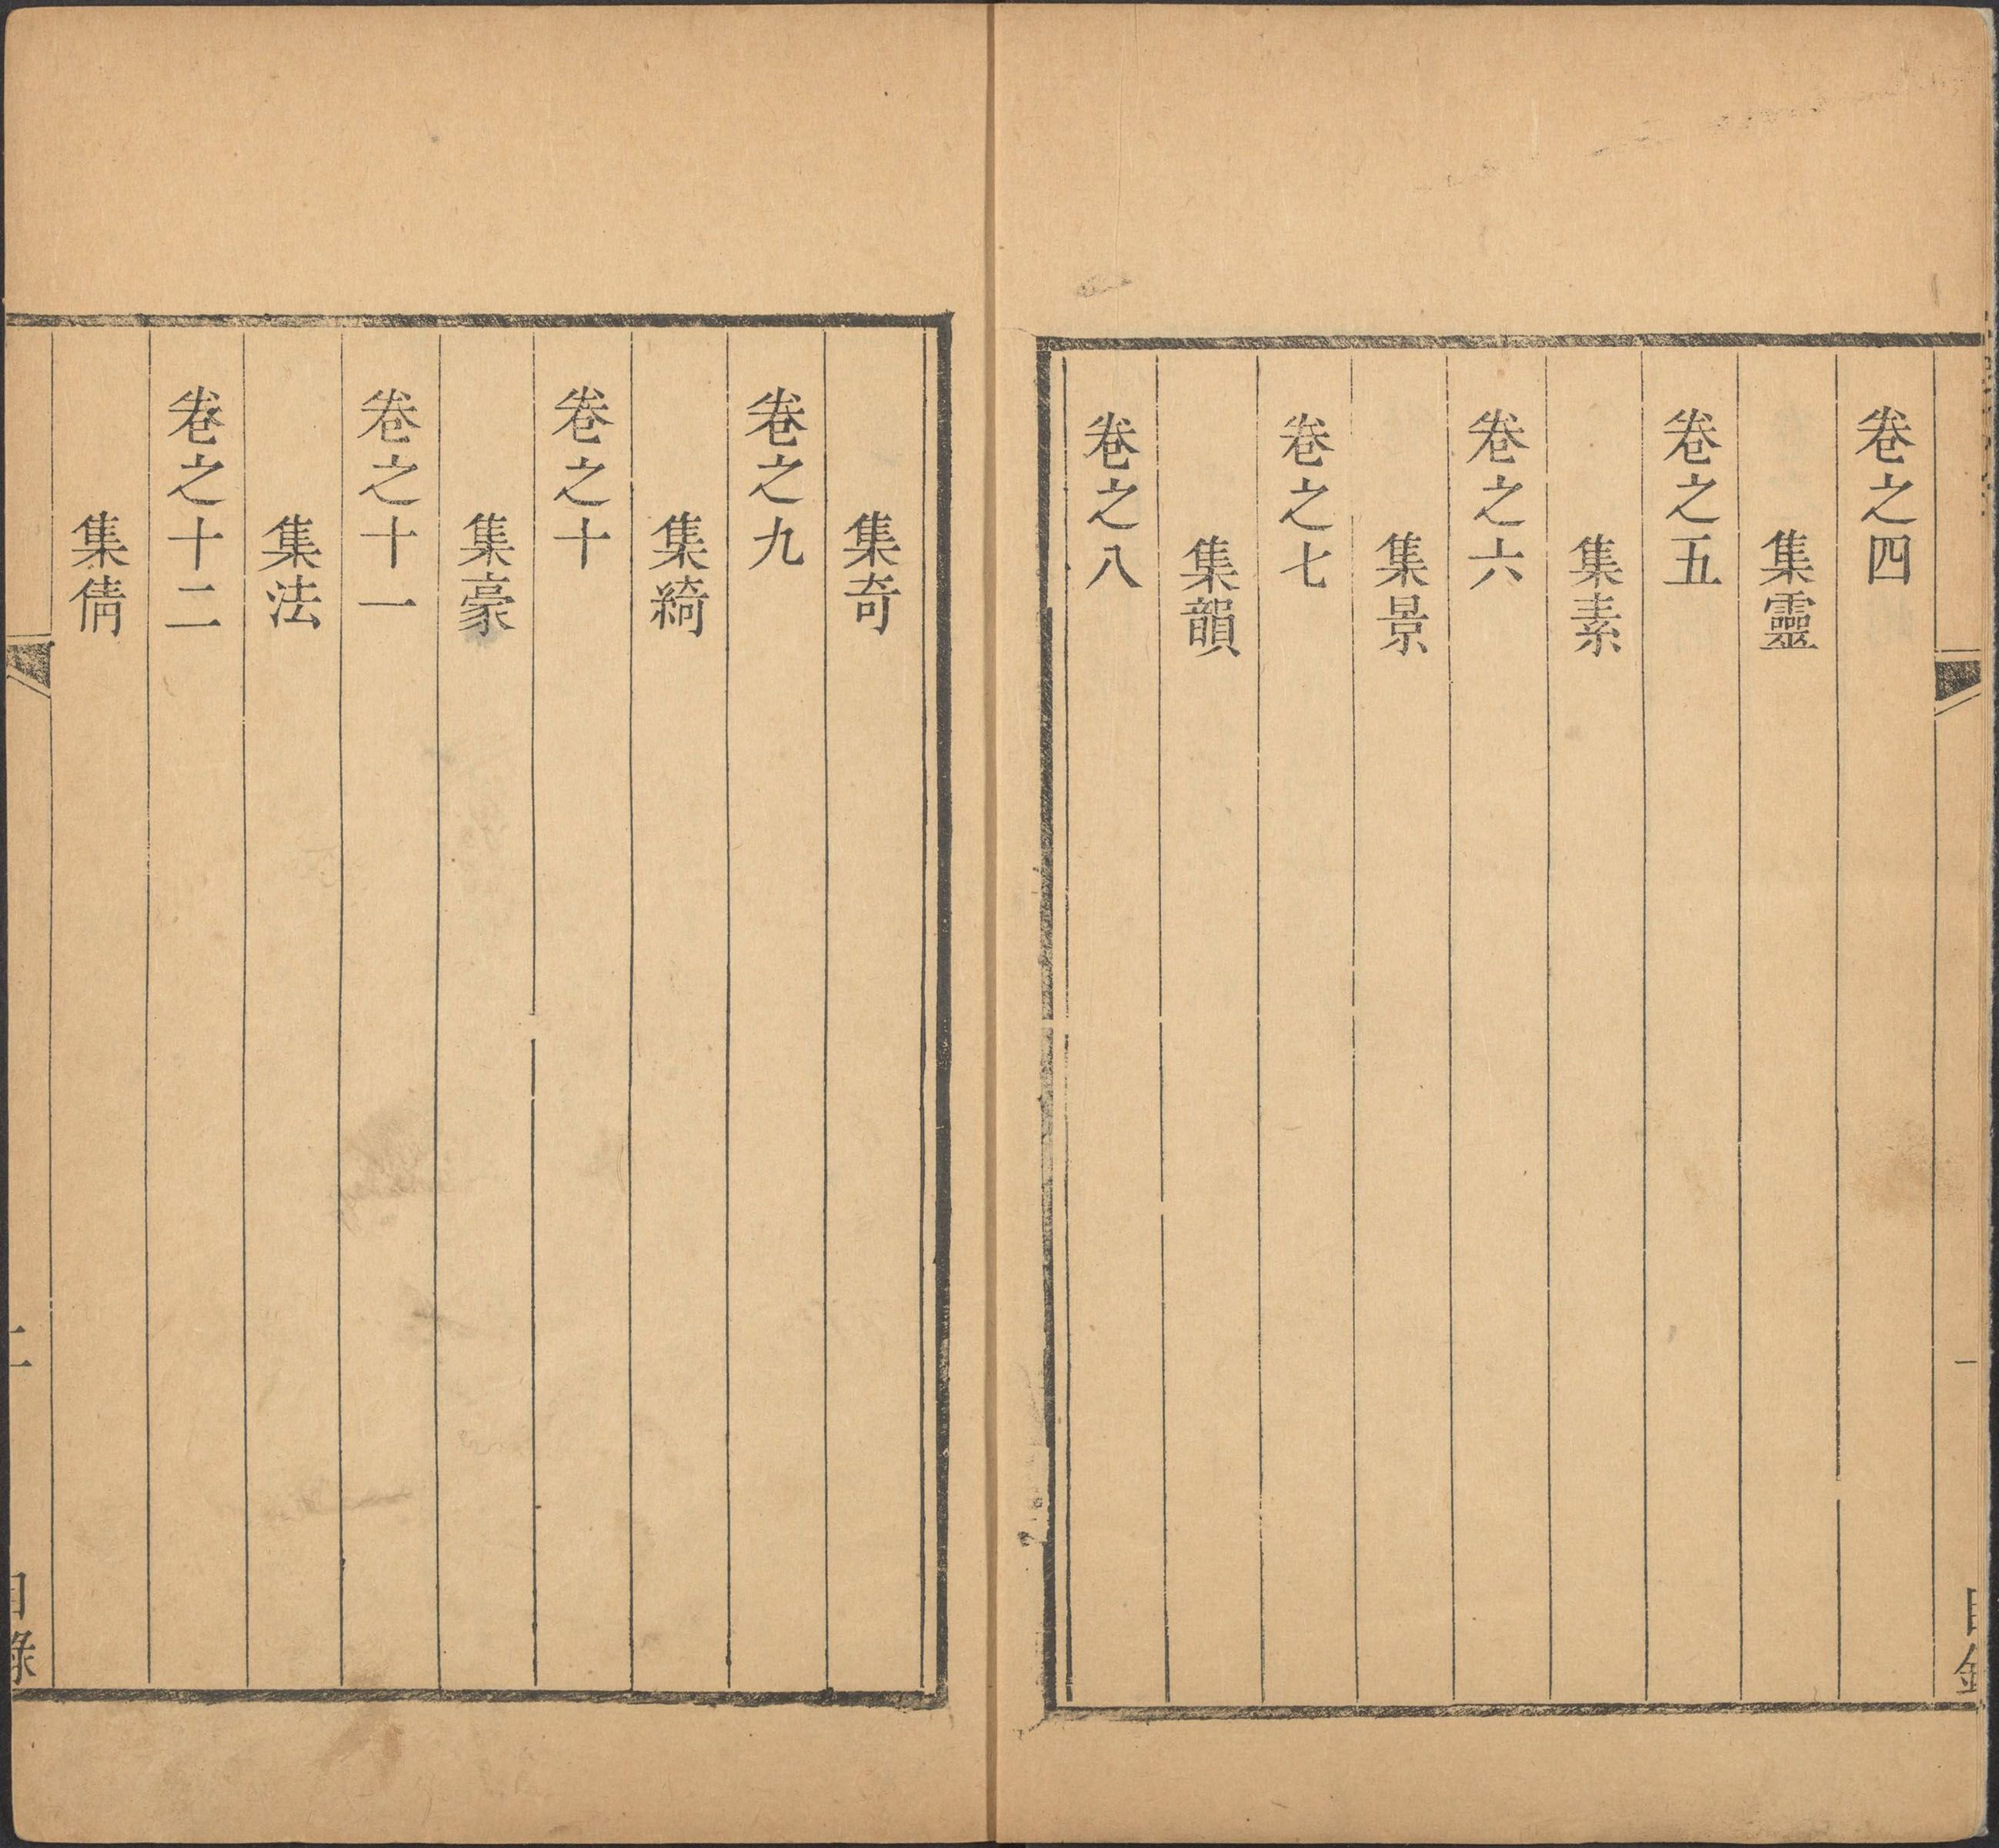 卷之四
集靈
卷之五
集素
卷之六
集景
卷之七
集韻
卷之八
集奇
卷之九
集綺
卷之十
集豪
卷之十一
集法
卷之十二
集倩
二
目錄